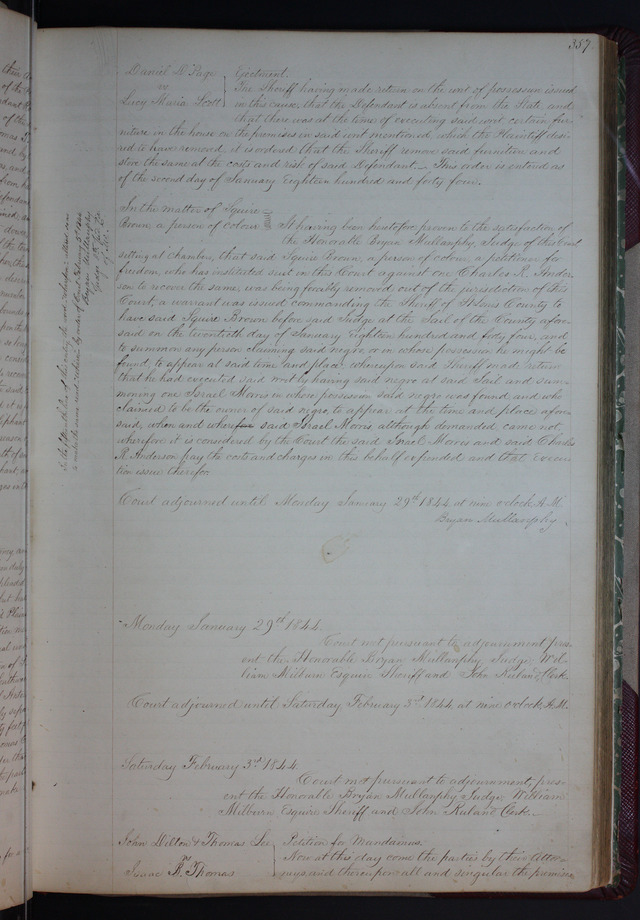 357
Daniel D. Page } Ejectment.
vs } The Sheriff having made return on the writ of possession issued
Lucy Maria Scott } in this cause, that the Defendant is absent from the State and
that there was at the time of executing said writ certain fur-
niture in the house on the premises in said writ mentioned which the Plaintiff desi-
red to have removed, it is ordered that the Sheriff remove said furniture and
store the same at the costs and risk of said Defendant. This order is entered as
of the second day of January Eighteen hundred and forty four.
In the matter of Squire
Brown, a person of colour } It having been heretofore proven to the satisfaction of
the Honorable Bryan Mullanphy, Judge of this Court
sitting at chambers, that said Squire Brown, a person of colour, a petitioner for
freedom, who has instituted suit in this Court against one Charles R. Ander-
son to recover the same, was being forcibly removed out of the jurisdiction of this
Court, a warrant was issued commanding the Sheriff of St Louis County to
have said Squire Brown before said Judge at the Jail of the County afore-
said on the twentieth day of January eighteen hundred and forty four, and
to summon any person claiming said negro, or in whose possession he might be
found, to appear at said time and place; whereupon said Sheriff made return
that he had executed said writ by having said negro at said Jail and sum-
moning one Israel Morris in whose possession said negro was found and who
claimed to be the owner of said negro, to appear at the time and place afore-
said, when and where said Israel Morris, although demanded, came not,
wherefore it is considered by the Court the said Israel Morris and said Charles
R. Anderson pay the costs and charges in this behalf expended and that Execu-
tion issue therefor.
Court adjourned until Monday January 29th 1844 at nine o'clock A.M.
Bryan Mullanphy
Monday January 29th 1844.
Court met pursuant to adjournment, pres-
ent the Honorable Bryan Mullanphy Judge, Wil-
liam Milburn Esquire Sheriff and John Ruland Clerk.
Court adjourned until Saturday February 3d 1844 at nine o'clock A.M.
Saturday February 3d 1844
Court met pursuant to adjournment, pres-
ent the Honorable Bryan Mullanphy Judge, William
Milburn Esquire Sheriff and John Ruland Clerk.
John Hilton & Thomas Lee } Petition for Mandamus.
vs } Now at this day come the parties by their Attor-
Isaac R. Thomas } neys and thereupon all and singular the premises